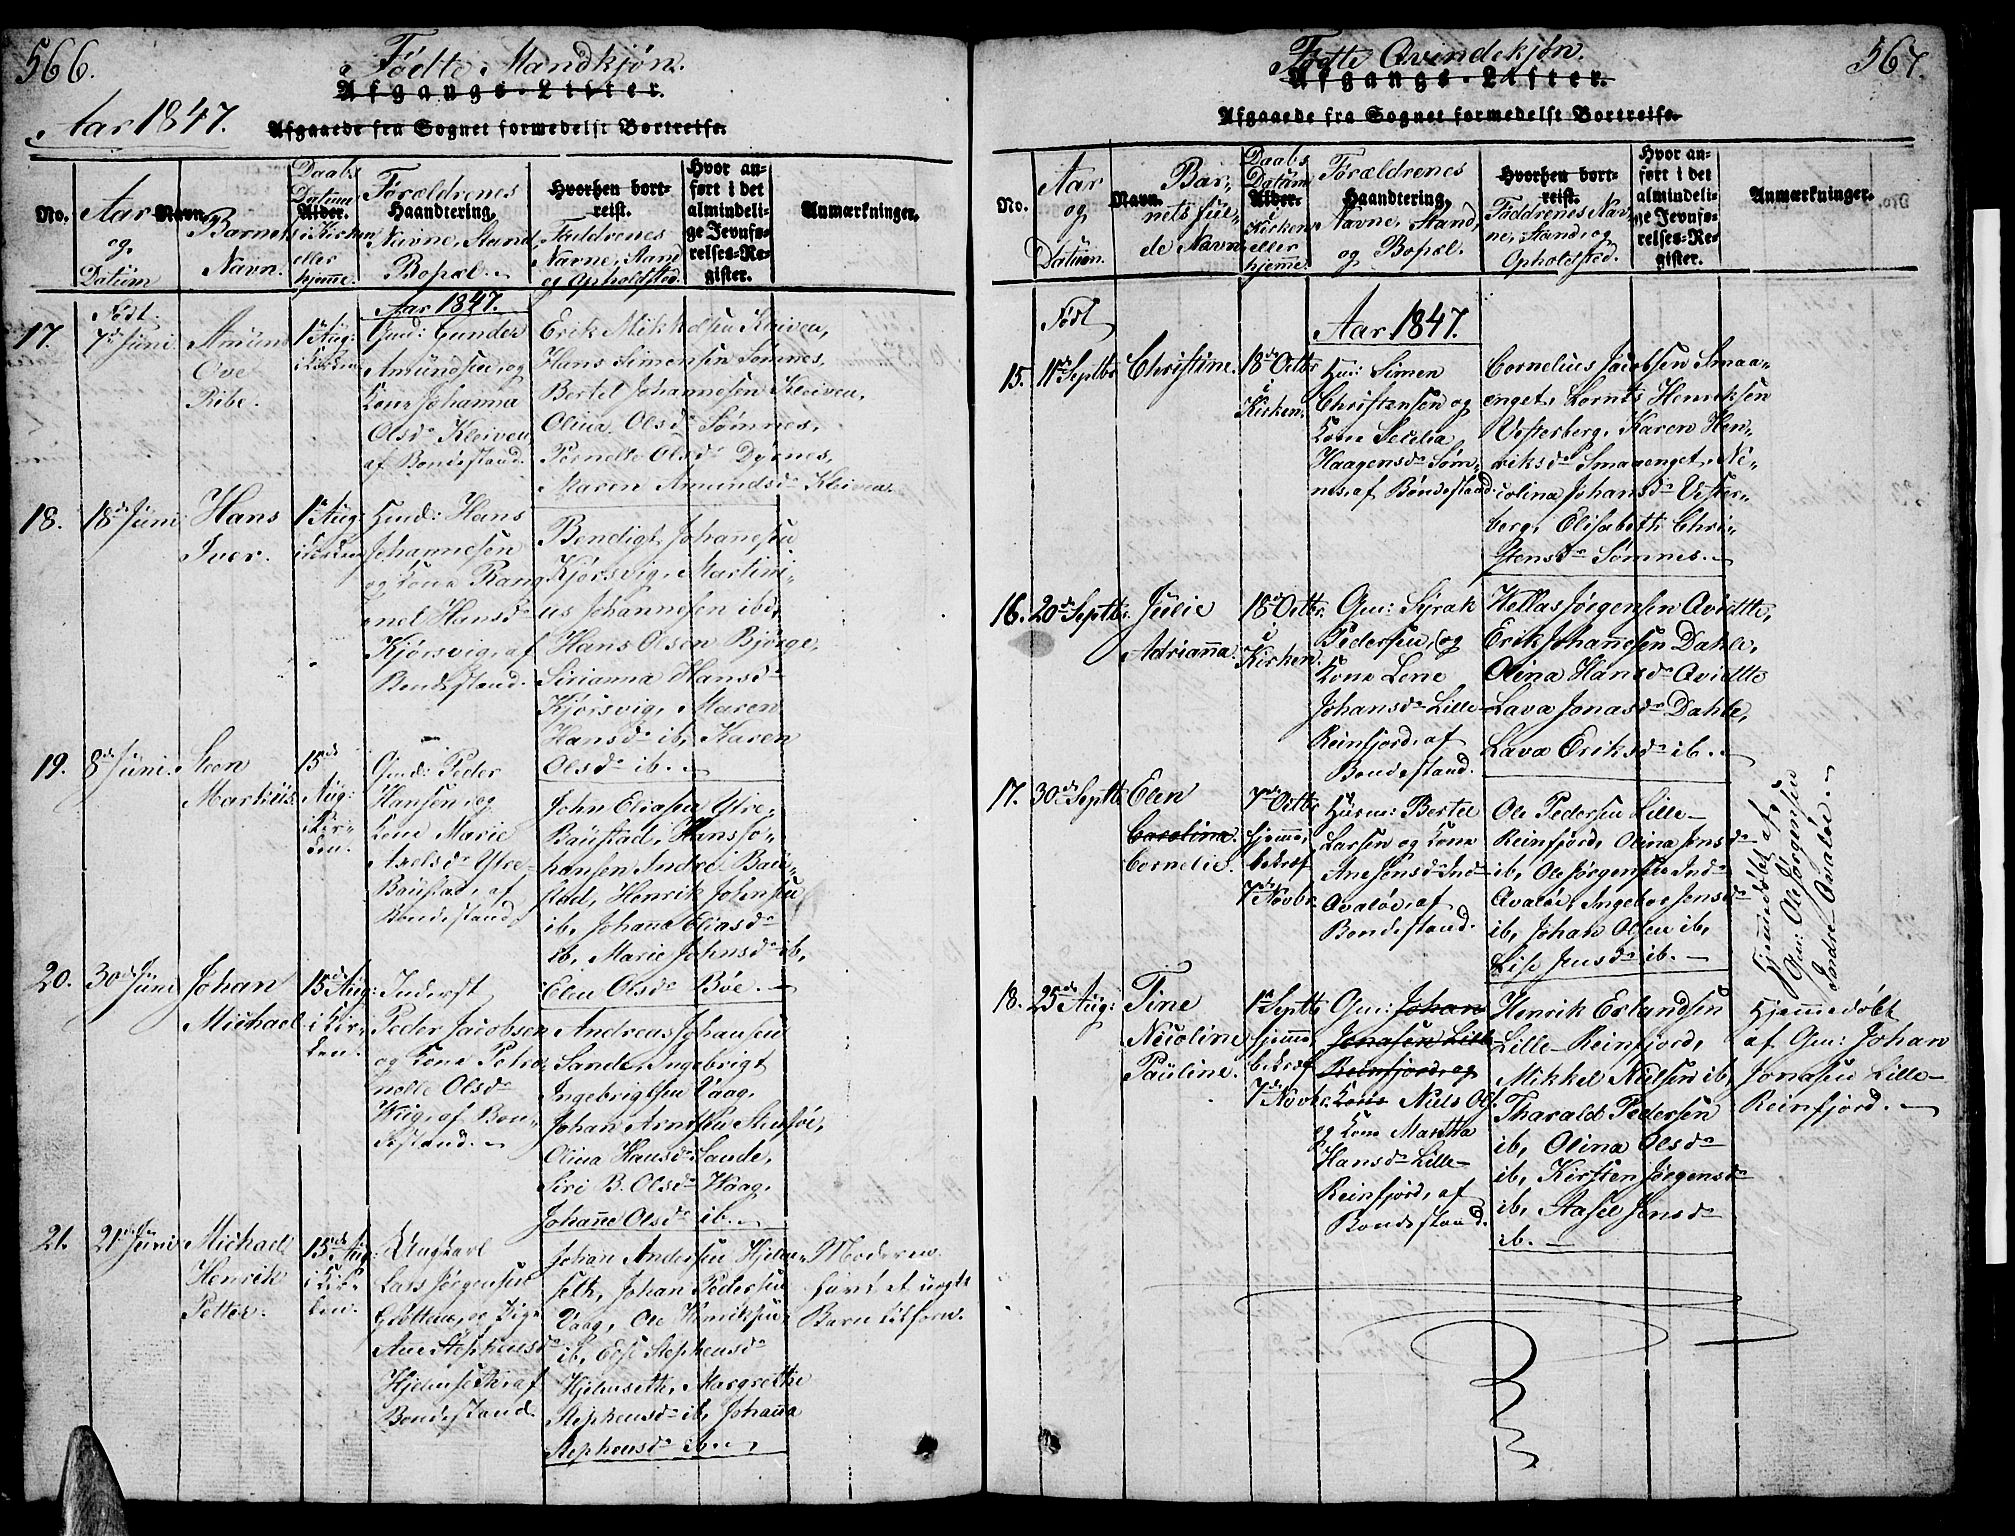 566.
Fødte Mandkjøn.
Afgangs-Lister.
Aar 1847.
Afgaaede fra Sognet formedelst Bortreise.
No.
Aar
og
Datum
Navn.
Barnets
Navn.
Daabs
Datum
Alder.
i Kirken
eller
hjemme.
Forældrenes
Haandtering.
Navne, Stand
Bopæl.
Hvorhen bort-
reist.
Faddrenes
Navne, Stand
og Opholdsted.
Hvor an-
ført i det
almindeli-
ge Jevnfø-
relses-Re-
gister.
Anmærkninger.
Født.
Aar 1847.
17.
7de Juni.
Amund
Ove
Ribe.
1ste Aug:
i Kirken
Gmd: Gunder
Amundsen, og
Kone Johanna
Olsdr Kleiven
af Bondestand.
Erik Mikkelsen Kleiven,
Hans Simensen Sømnes,
Bertel Johannesen Kleiven,
Olina Olsdr Sømnes,
Pernelle Olsdr Dyrnes,
Maren Amundsdr Kleiven.
18.
18de Juni
Hans
Iver.
1ste Aug:
i Kirken
Huusmd: Hans
Johannesen
og Kone Rang
nel Hansdr
Kjørsvig, af
Bondestand.
Bendigt Johanesen
Kjørsvig, Martini-
us Johannesen ibi,
Hans Olsen Bjørge,
Sirianna Hansdr
Kjørsvig, Maren
Hansdr ib, Karen
Olsdr ib.
19.
8de Juni.
Steen
Martius.
15de
Aug:
i Kir-
ken.
Gmd: Peder
Hansen, og
Kone Marie
Axelsdr Ytre-
Baustad, af
Bondestand,
John Eliasen Ytre-
Baustad, Hans Jo-
hansen Indre Bau-
stad, Henrik Johnsen
ib, Johana Eliasdr
ib, Marie Johnsdr ib,
Elen Olsdr Bøe.
20.
30de Juni
Johan
Michael
15de Aug:
i Kir-
ken.
Inderst
Peder Jacobsen
og Kone Petro
nelle Olsdr
Wiig, af Bon-
destand.
Andreas Johansen
Sande, Ingebrigt
Ingebrigtsen Vaag,
Johan Arntsen Stensøi,
Olina Hansdr Sande,
Siri B. Olsdr Waag,
Johanne Olsdr ib.
21.
21de Juni
Michael
Henrik
Petter.
15de Aug:
i Kir-
ken.
Ungkarl
Lars Jørgensen
Grøtten, og Pige
Ane Stephensdr
Hjelmseth, af
Bondestand
Johan Andersen Hjelm-
seth, Johan Pedersen
Vaag, Ole Henriksen
ib, Else Stephensdr
Hjelmseth, Margrethe
Stephensdr ib, Johana
Stephensdr ib.
Moderen
havt et uægte
Barn tilforn.
567.
Fødte Qvindekjøn.
Afgangs-Lister.
Afgaaede fra Sognet formedelst Bortreise.
No.
Aar
og
Datum.
Navn.
Bar-
nets ful-
de Navn
Daabs
Datum
Alder.
i Kirken
eller
hjemme.
Forældrenes
Haandtering.
Navne, Stand,
og Bopæl.
Hvorhen bort-
reist.
Faddrenes Nav-
ne, Stand, og
Opholdsted.
Hvor an-
ført i det
almindeli-
ge Jevnfø-
relses-Re-
gister.
Anmærkninger.
No.
Født
Aar 1847.
15.
11te Septbr
Christine.
18de Octbr
i
Kirken.
Hus: Simen
Christensen og
Kone Secilia
Haagensdr Søm-
nes, af Bondestand.
Cornelius Jacobsen Smaa-
enget, Lornts Henriksen
Vesterberg, Karen Hen-
riksdr Smaaenget, Ni-
colina Johansdr Vester-
berg, Elisabeth Chri-
stensdr Sømnes.
16.
20de Septbr.
Julie
Adrianna.
18de Octbr.
i
Kirken.
Gm: Syrak
Pedersen, og
Kone Lene
Johansdr Lille-
Reinfjord, af
Bondestand.
Hellas Jørgensen Qvidtte,
Erik Johannesen Dahle,
Olina Hansdr Qvidtte
Lava Jonasdr Dahle,
Lava Eriksdr ib.
17.
30de Septb.
Elen
Carolina.
Cornelie.
7de Octbr
hjemme,
bekræf
7de Novbr.
Husm: Bertel
Larsen og Kone
Ane Jensdr Ind-
Qvaløe, af
Bondestand.
Ole Pedersen Lille-
Reinfjord, Olina Jensdr
ib, Ole Jørgensen Ind-
Qvaløe, Ingeboe Jensdr
ib, Johan Olsen ib,
Lise Jensdr ib.
Hjemmedøbt af
Gm: Ole Jørgensen
Indre-Qvaløe.
18.
25de Aug:
Tine
Nicoline
Pauline.
1ste Septb
hjemme,
bekræf
7de Novbr.
Gm: Johan
Jonasen Lille-
Reinfjord, og
Kone Niels Ols.
og Kone Martha
Hansdr Lille-
Reinfjord, af
Bondestand.
Henrik Erlandsen
Lille-Reinfjord,
Mikkel Nielsen ib,
Tharald Pedersen
ib, Olina Olsdr
ib, Kirsten Jørgensdr
ib, Aasel Jensdr
ib.
Hjemmedøbt
af Gm: Johan
Jonasen Lille-
Reinfjord.